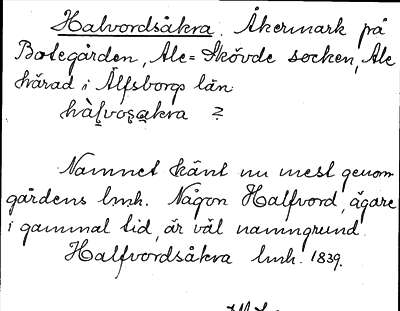 Halvordsåkra. Åkermark på
Botegården, Ale=Skövde socken, Ale
härad i Älfsborgs län.
hàl̥vos̥a̱kra ?
Namnet känt nu mest genom
gårdens lmh. Någon Halfvord, ägare
i gammal tid, är väl namngrund.
Halfvordsåkra lmh. 1839.